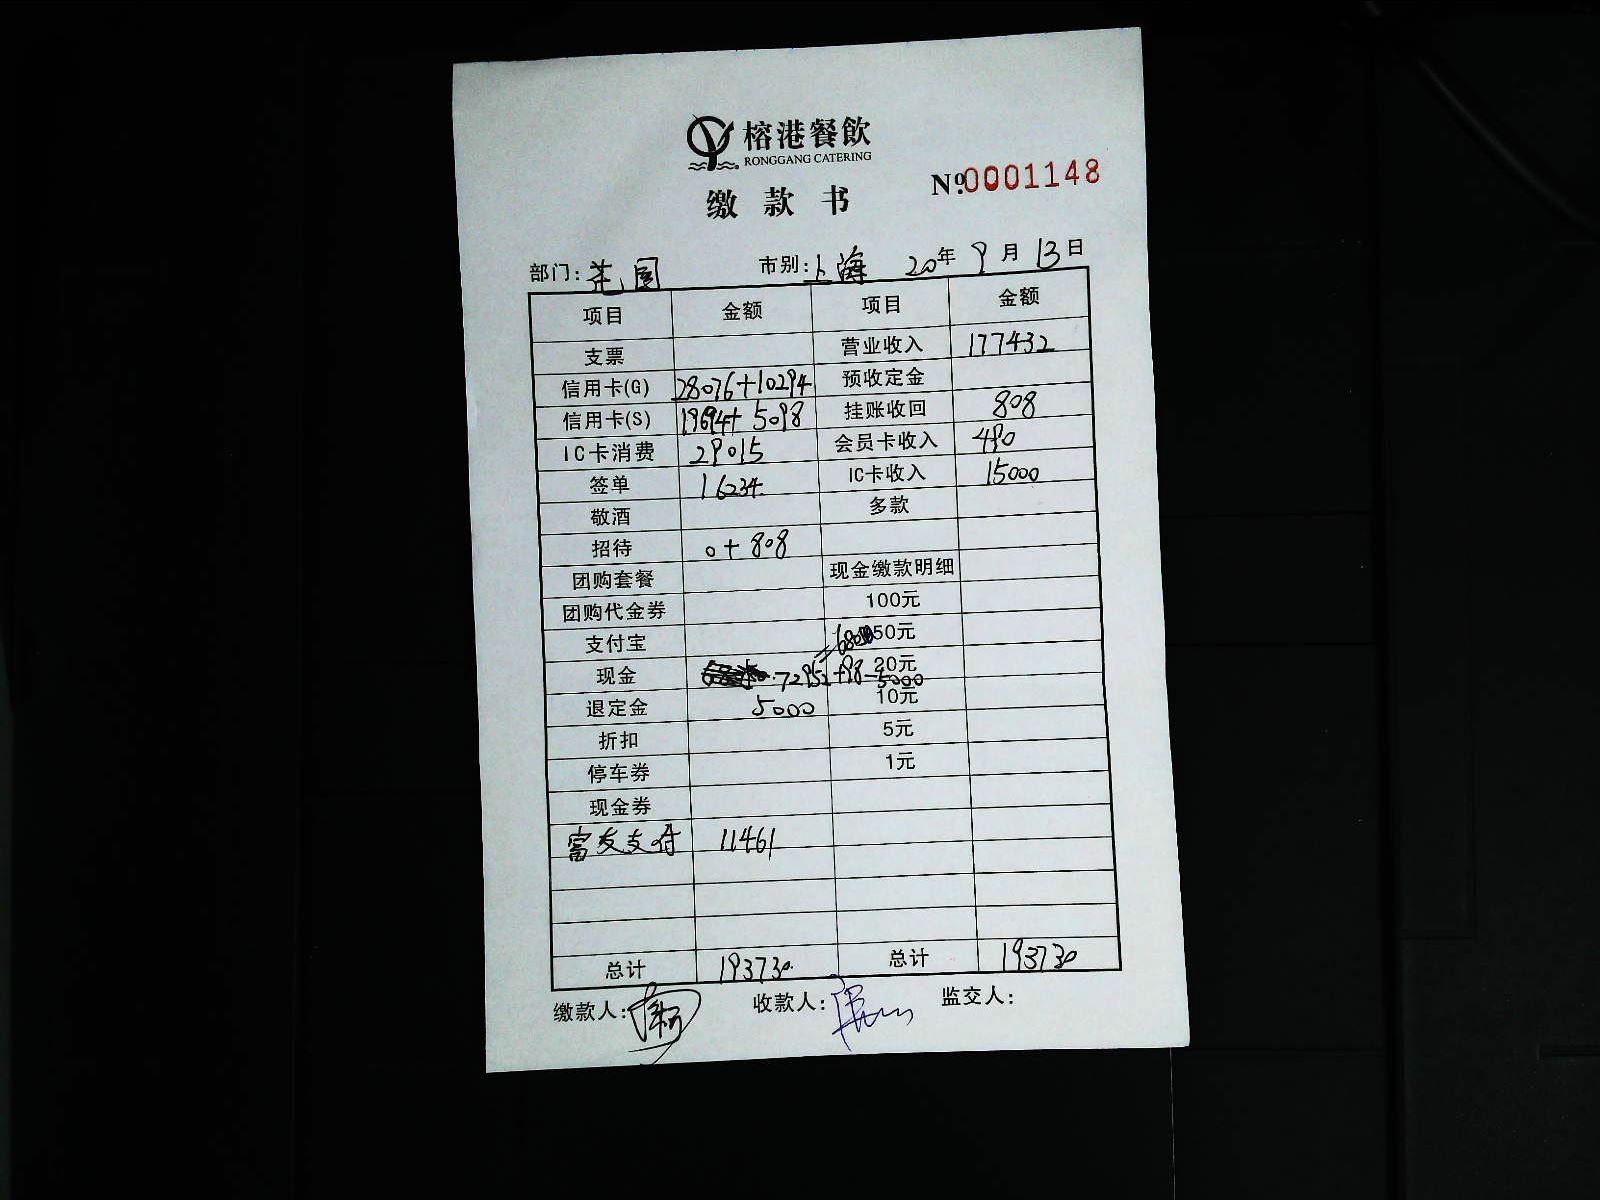 榕港餐飲
RONGGANG CATERING
缴款书
No.0001148
部门: 市别:上海 20年9月13日
项目 金额 项目 金额
支票 营业收入 177432
信用卡(G) 28076+10294 预收定金
信用卡(S) 19694+5098 挂账收回 808
IC卡消费 29015 会员卡收入 490
签单 16234 IC卡收入 15000
敬酒 多款
招待 0+808
团购套餐 现金缴款明细
团购代金券 100元
支付宝 50元
现金 +98-5000 20元
退定金 5000 10元
折扣 5元
停车券 1元
现金券
富友支付 11461
总计 193730 总计 193730
缴款人: 收款人: 监交人: